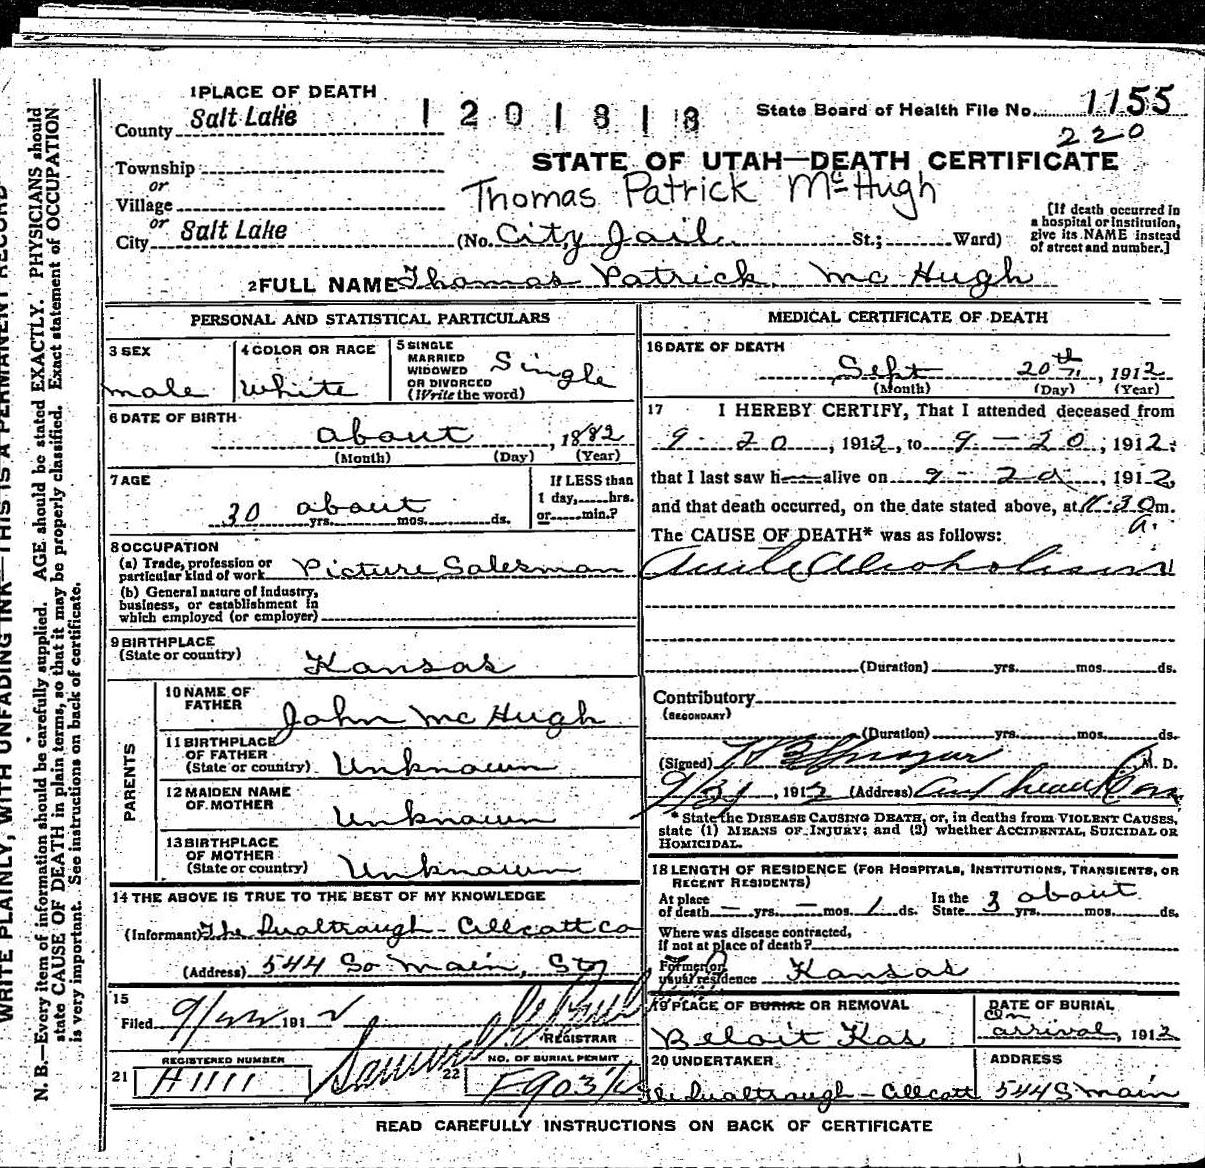 1 PLACE OF DEATH
County Salt Lake
1201818
State Board of Health File No. 1155
220
Township
or
Village
or
City Salt Lake
STATE OF UTAH—DEATH CERTIFICATE
Thomas Patrick McHugh
(No. City Jail St.; Ward)
[If death occurred in a hospital or institution, give its NAME instead of street and number.]
2 FULL NAME Thomas Patrick Mc Hugh
PERSONAL AND STATISTICAL PARTICULARS
3 SEX
male
4 COLOR OR RACE
White
5 SINGLE
MARRIED
WIDOWED
OR DIVORCED
(Write the word)
Single
6 DATE OF BIRTH
about, 1882
(Month) (Day) (Year)
7 AGE
30 about
yrs. mos. ds.
If LESS than
1 day, hrs.
or min.?
8 OCCUPATION
(a) Trade, profession or
particular kind of work Picture Salesman
(b) General nature of industry,
business, or establishment in
which employed (or employer)
9 BIRTHPLACE
(State or country)
Kansas
PARENTS
10 NAME OF
FATHER
John Mc Hugh
11 BIRTHPLACE
OF FATHER
(State or country) Unknown
12 MAIDEN NAME
OF MOTHER
Unknown
13 BIRTHPLACE
OF MOTHER
(State or country) Unknown
14 THE ABOVE IS TRUE TO THE BEST OF MY KNOWLEDGE
(Informant) The
(Address) 544 So Main, St
15
Filed 9/22 1912
REGISTRAR
REGISTERED NUMBER
21 H1111
NO. OF BURIAL PERMIT
22
MEDICAL CERTIFICATE OF DEATH
16 DATE OF DEATH
Sept 20th, 1912
(Month) (Day) (Year)
17 I HEREBY CERTIFY, That I attended deceased from
9 - 20, 1912, to 9 - 20, 1912,
that I last saw h alive on 9 - 20, 1912,
and that death occurred, on the date stated above, at 11:30 m.
a.
The CAUSE OF DEATH* was as follows:
Acute Alcoholism
(Duration) yrs. mos. ds.
Contributory
(SECONDARY)
(Duration) yrs. mos. ds.
(Signed) M. D.
, 1912 (Address)
* State the DISEASE CAUSING DEATH, or, in deaths from VIOLENT CAUSES,
state (1) MEANS OF INJURY; and (2) whether ACCIDENTAL, SUICIDAL OR
HOMICIDAL.
18 LENGTH OF RESIDENCE (FOR HOSPITALS, INSTITUTIONS, TRANSIENTS, OR
RECENT RESIDENTS)
At place of death — yrs. — mos. 1 ds. In the State 3 about yrs. mos. ds.
Where was disease contracted,
if not at place of death?
Former or
usual residence Kansas
19 PLACE OF BURIAL OR REMOVAL
Beloit Kas
DATE OF BURIAL
On
arrival, 1912
20 UNDERTAKER
ADDRESS
544 S Main
READ CAREFULLY INSTRUCTIONS ON BACK OF CERTIFICATE
WRITE PLAINLY, WITH UNFADING INK—THIS IS A PERMANENT RECORD
N. B.—Every item of information should be carefully supplied. AGE should be stated EXACTLY. PHYSICIANS should
state CAUSE OF DEATH in plain terms, so that it may be properly classified. Exact statement of OCCUPATION
is very important. See instructions on back of certificate.